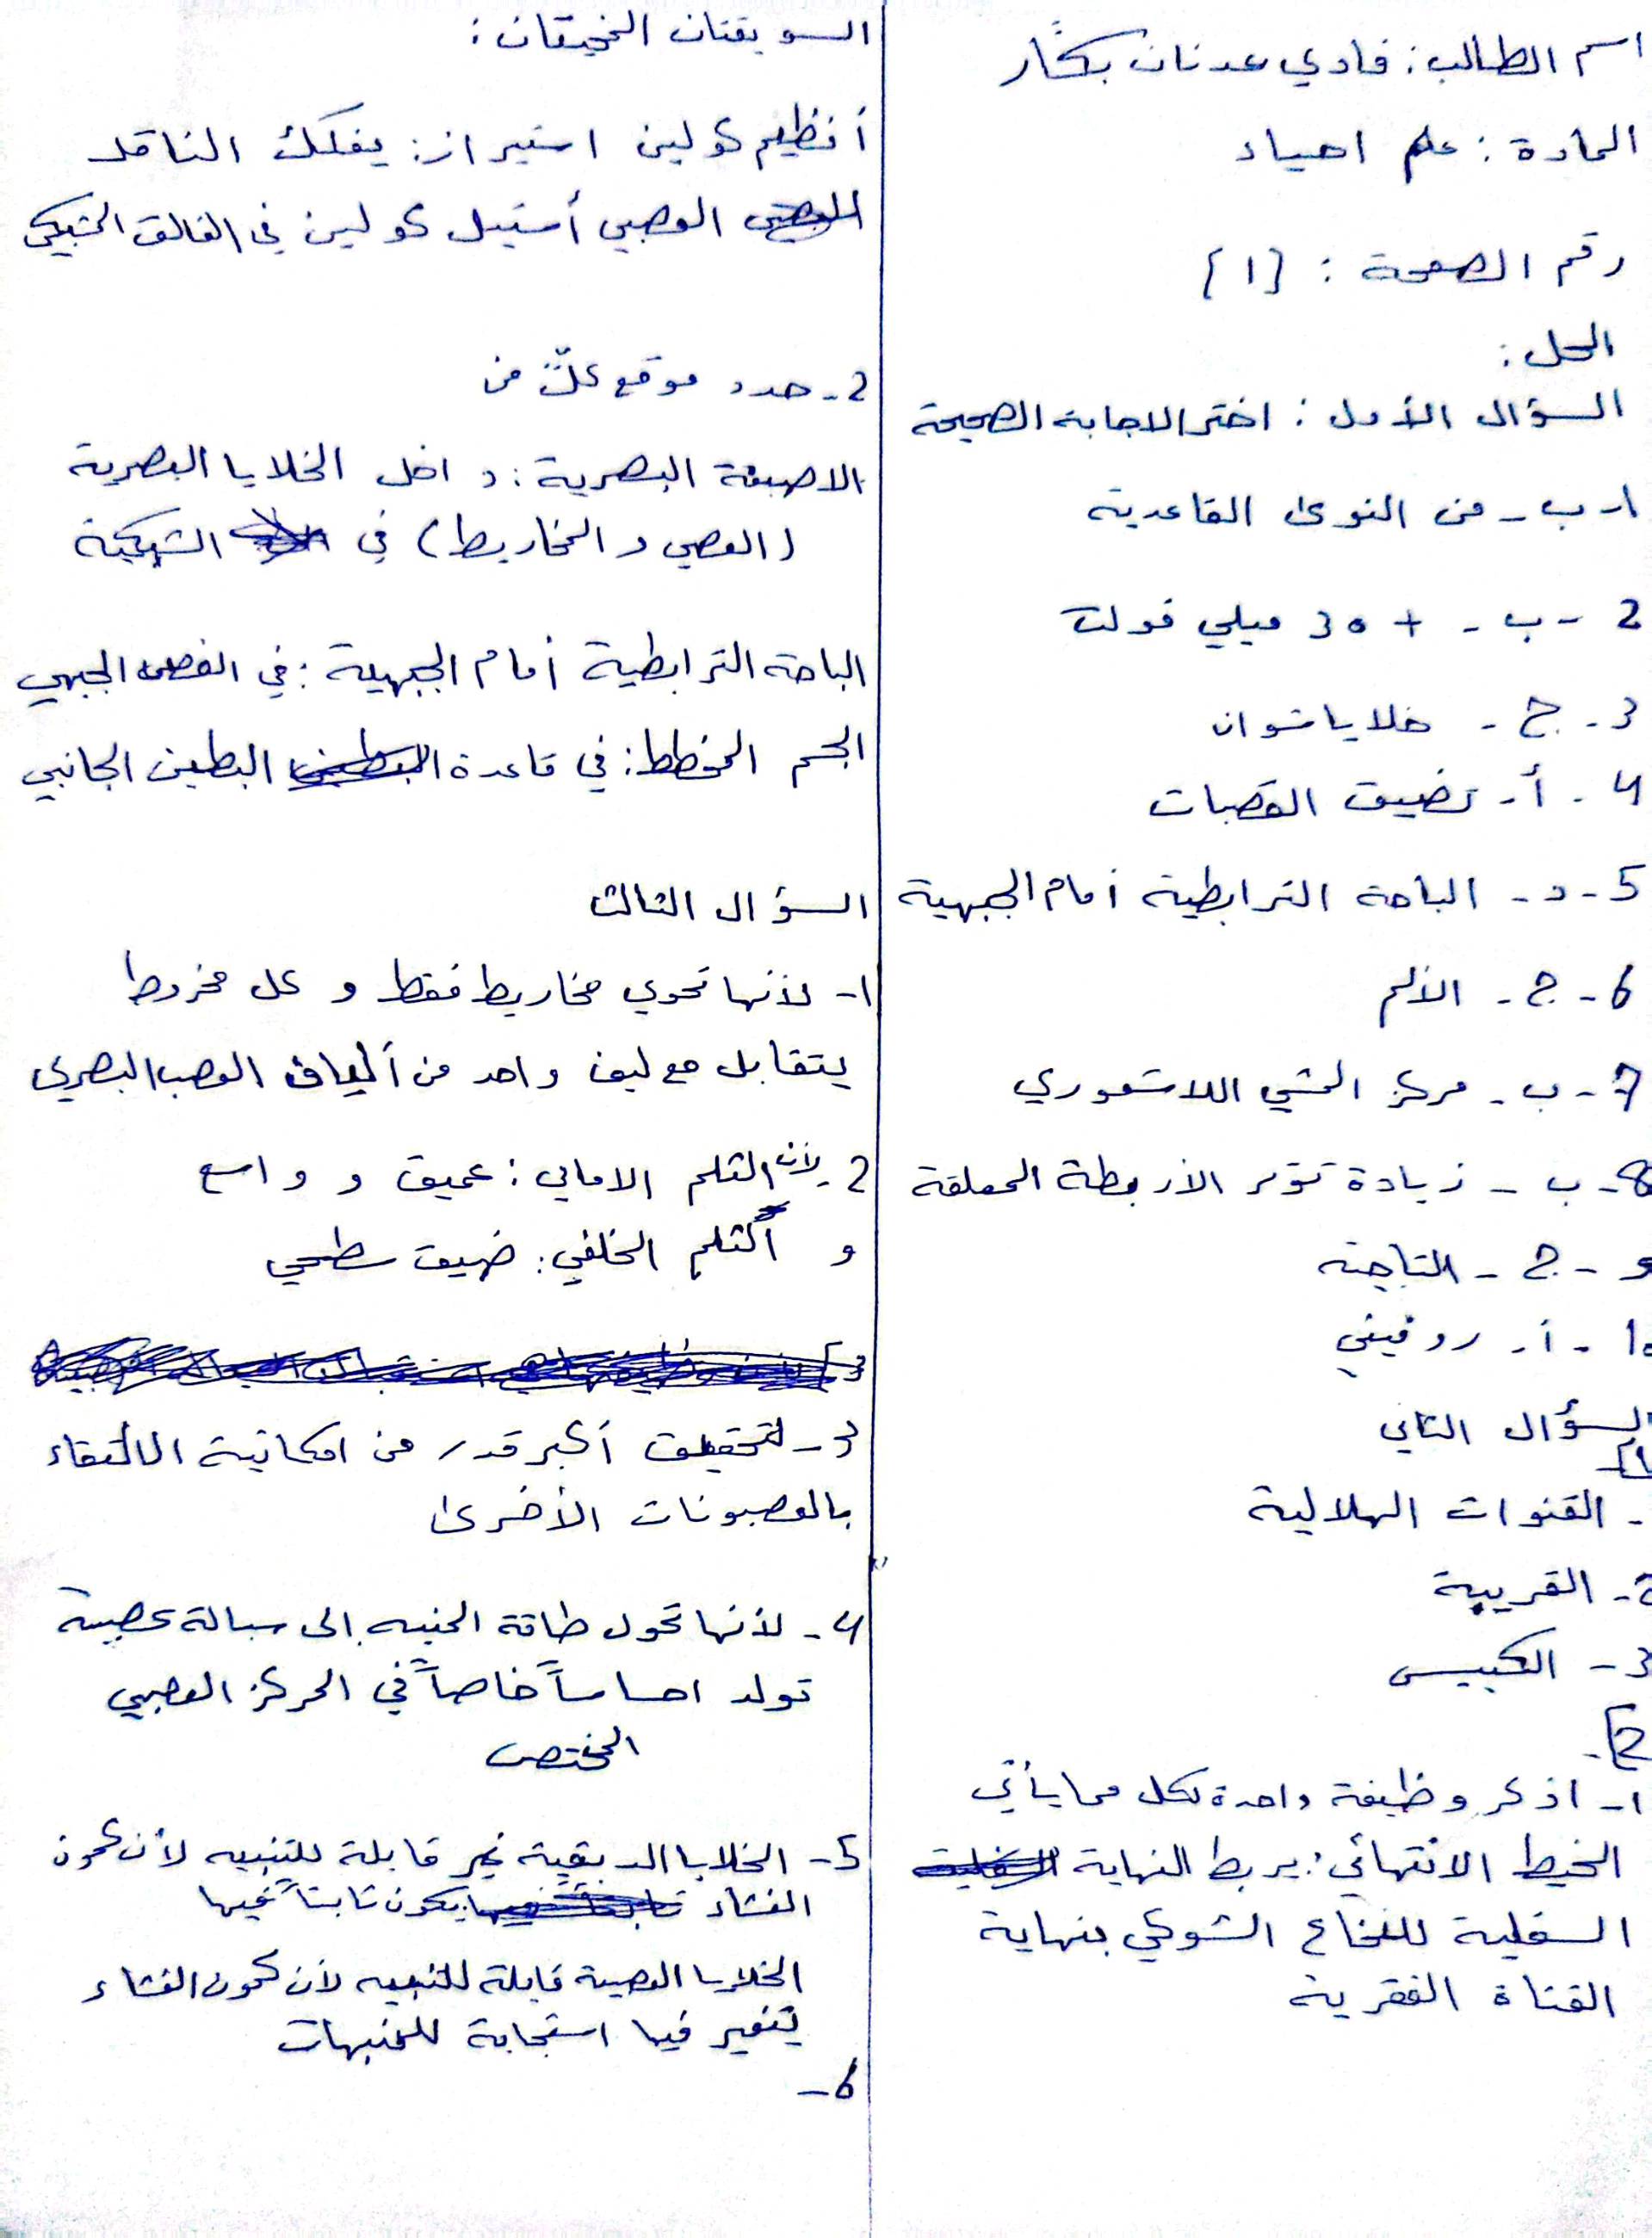 اسم الطالب: فادي عدنان بكّار
المادة: علم احياء
رقم الصفحة: {١}
الحل:
السؤال الأول: اختر الاجابة الصحيحة
١- ب - من النوى القاعدية
2 - ب - + 30 ميلي فولت
3 - ج - خلايا شوان
4 - أ - تضييق القصبات
5 - د - الباحة الترابطية أمام الجبهية
6 - ج - الألم
7 - ب - مركز المشي اللاشعوري
8 - ب - زيادة توتر الأربطة المعلقة
9 - ج - التاجية
10 - أ - روفيني
السؤال الثاني
1]
- القنوات الهلالية
2 - القريبة
3 - الكييس
2]
١- اذكر وظيفة واحدة لكل مما يأتي
الخيط الانتهائي: يربط النهاية
السفلية للنخاع الشوكي بنهاية
القناة الفقرية
السويقتان المخيتان:
أنظيم كولين استيراز: يفكك الناقل
العصبي أستيل كولين في الفالق المشبكي
2- حدد موقع كلّ من
الاصبغة البصرية: داخل الخلايا البصرية
(العصي و المخاريط) في الشبكية
الباحة الترابطية أمام الجبهية: في الفص الجبهي
الجسم المخطط: في قاعدة البطين الجانبي
السؤال الثالث
١- لأنها تحوي مخاريط فقط و كل مخروط
يتقابل مع ليف واحد من ألياف العصب البصري
2- لأن الثلم الامامي: عميق و واسع
و الثلم الخلفي: ضيق سطحي
3- لتحقيق أكبر قدر من امكانية الالتقاء
بالعصبونات الأخرى
4- لأنها تحول طاقة المنبه إلى سيالة عصبية
تولد احساساً خاصاً في المركز العصبي
المختص
5- الخلايا الدبقية غير قابلة للتنبيه لأن كمون
الغشاء يكون ثابتاً فيها
الخلايا العصبية قابلة للتنبيه لأن كمون الغشاء
يتغير فيها استجابة للمنبهات
6-